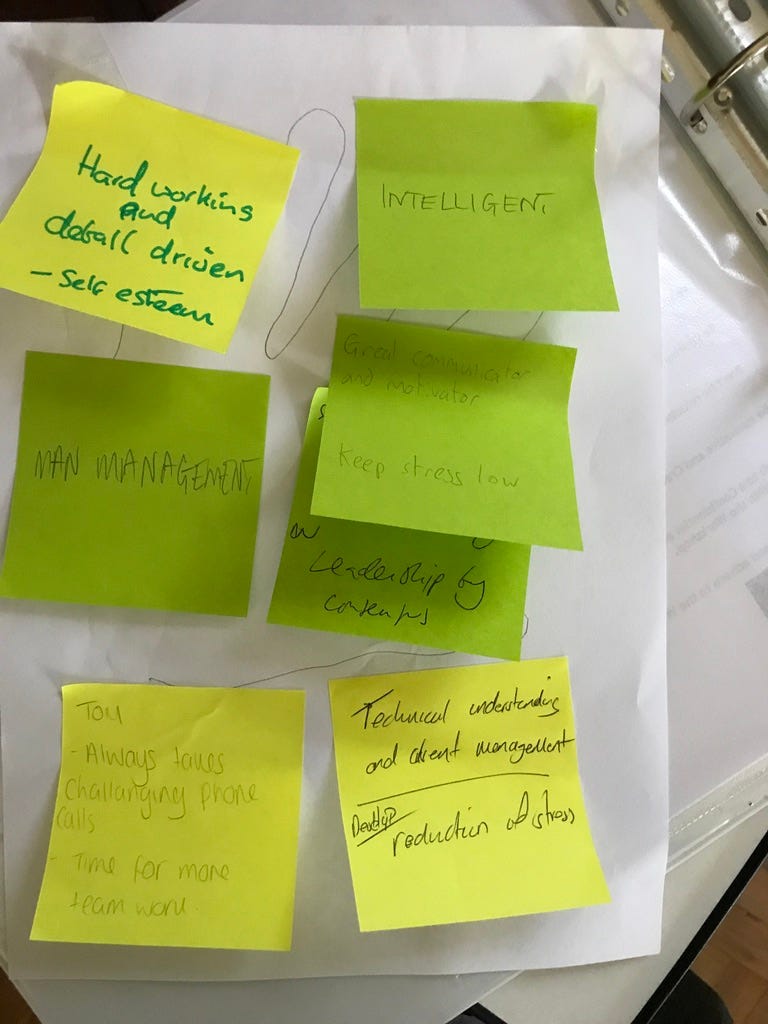 Hard working
and
detail driven
- Self esteem
INTELLIGENT
MAN MANAGEMENT
Great communicator
and motivator
Keep stress low
Leadership by
TOM
- Always takes
Challanging phone
calls
- Time for more
team work.
Technical understanding
and client management
Develop
reduction of stress